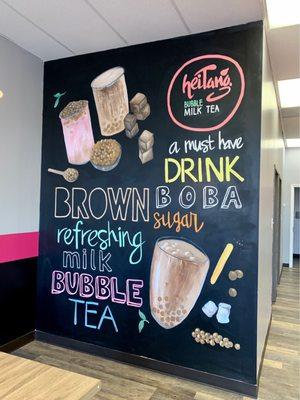 heitang
BUBBLE
MILK TEA
a must have
DRINK
BROWN BOBA
sugar
refreshing
milk
BUBBLE
TEA